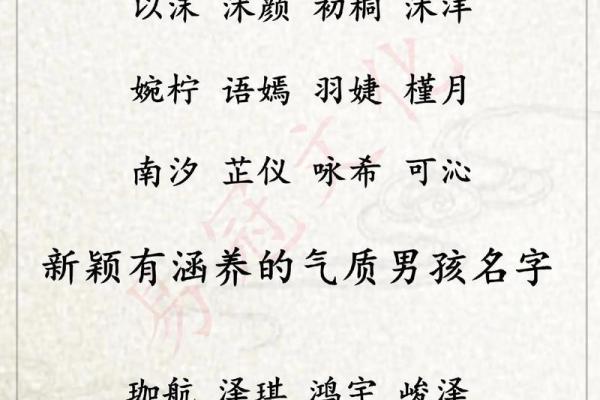 以沫 沐颜 初桐 沐洋
婉柠 语嫣 羽婕 槿月
南汐 芷仪 咏希 可沁
新颖有涵养的气质男孩名字
珈航 泽琪 鸿宇 峻泽
易冠文化